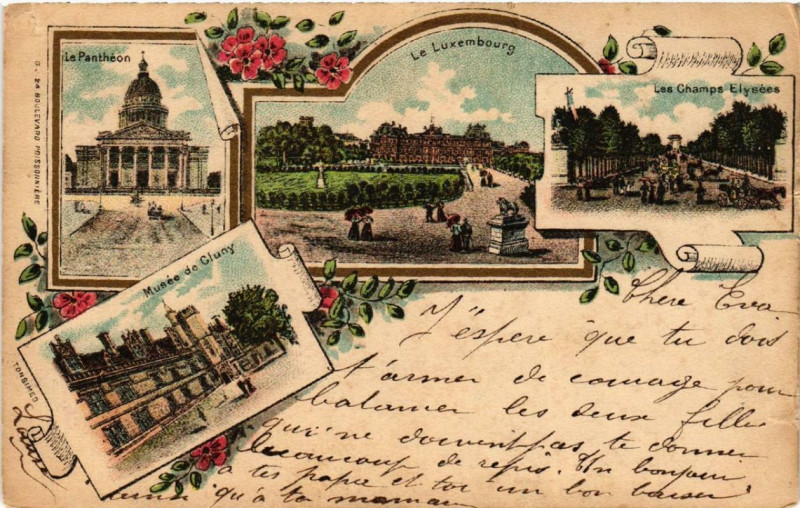 Le Panthéon
Le Luxembourg
Les Champs Elysées
Musée de Cluny
24 BOULEVARD POISSONNIÈRE
Chère Eva
J'éspère que tu dois
t'armer de courage pour
les deux filles
qui ne doivent pas te donner
beaucoup de repis. Un bonjour
à tes papa et toi un bon baiser
qu'à ta maman